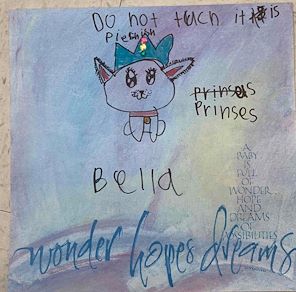 Do not tuch it is
Plebish
prinses
Prinses
Bella
A
BABY
IS
FULL
OF
WONDER
HOPE
AND
DREAMS
OF
POSSIBILITIES
wonder hopes dreams